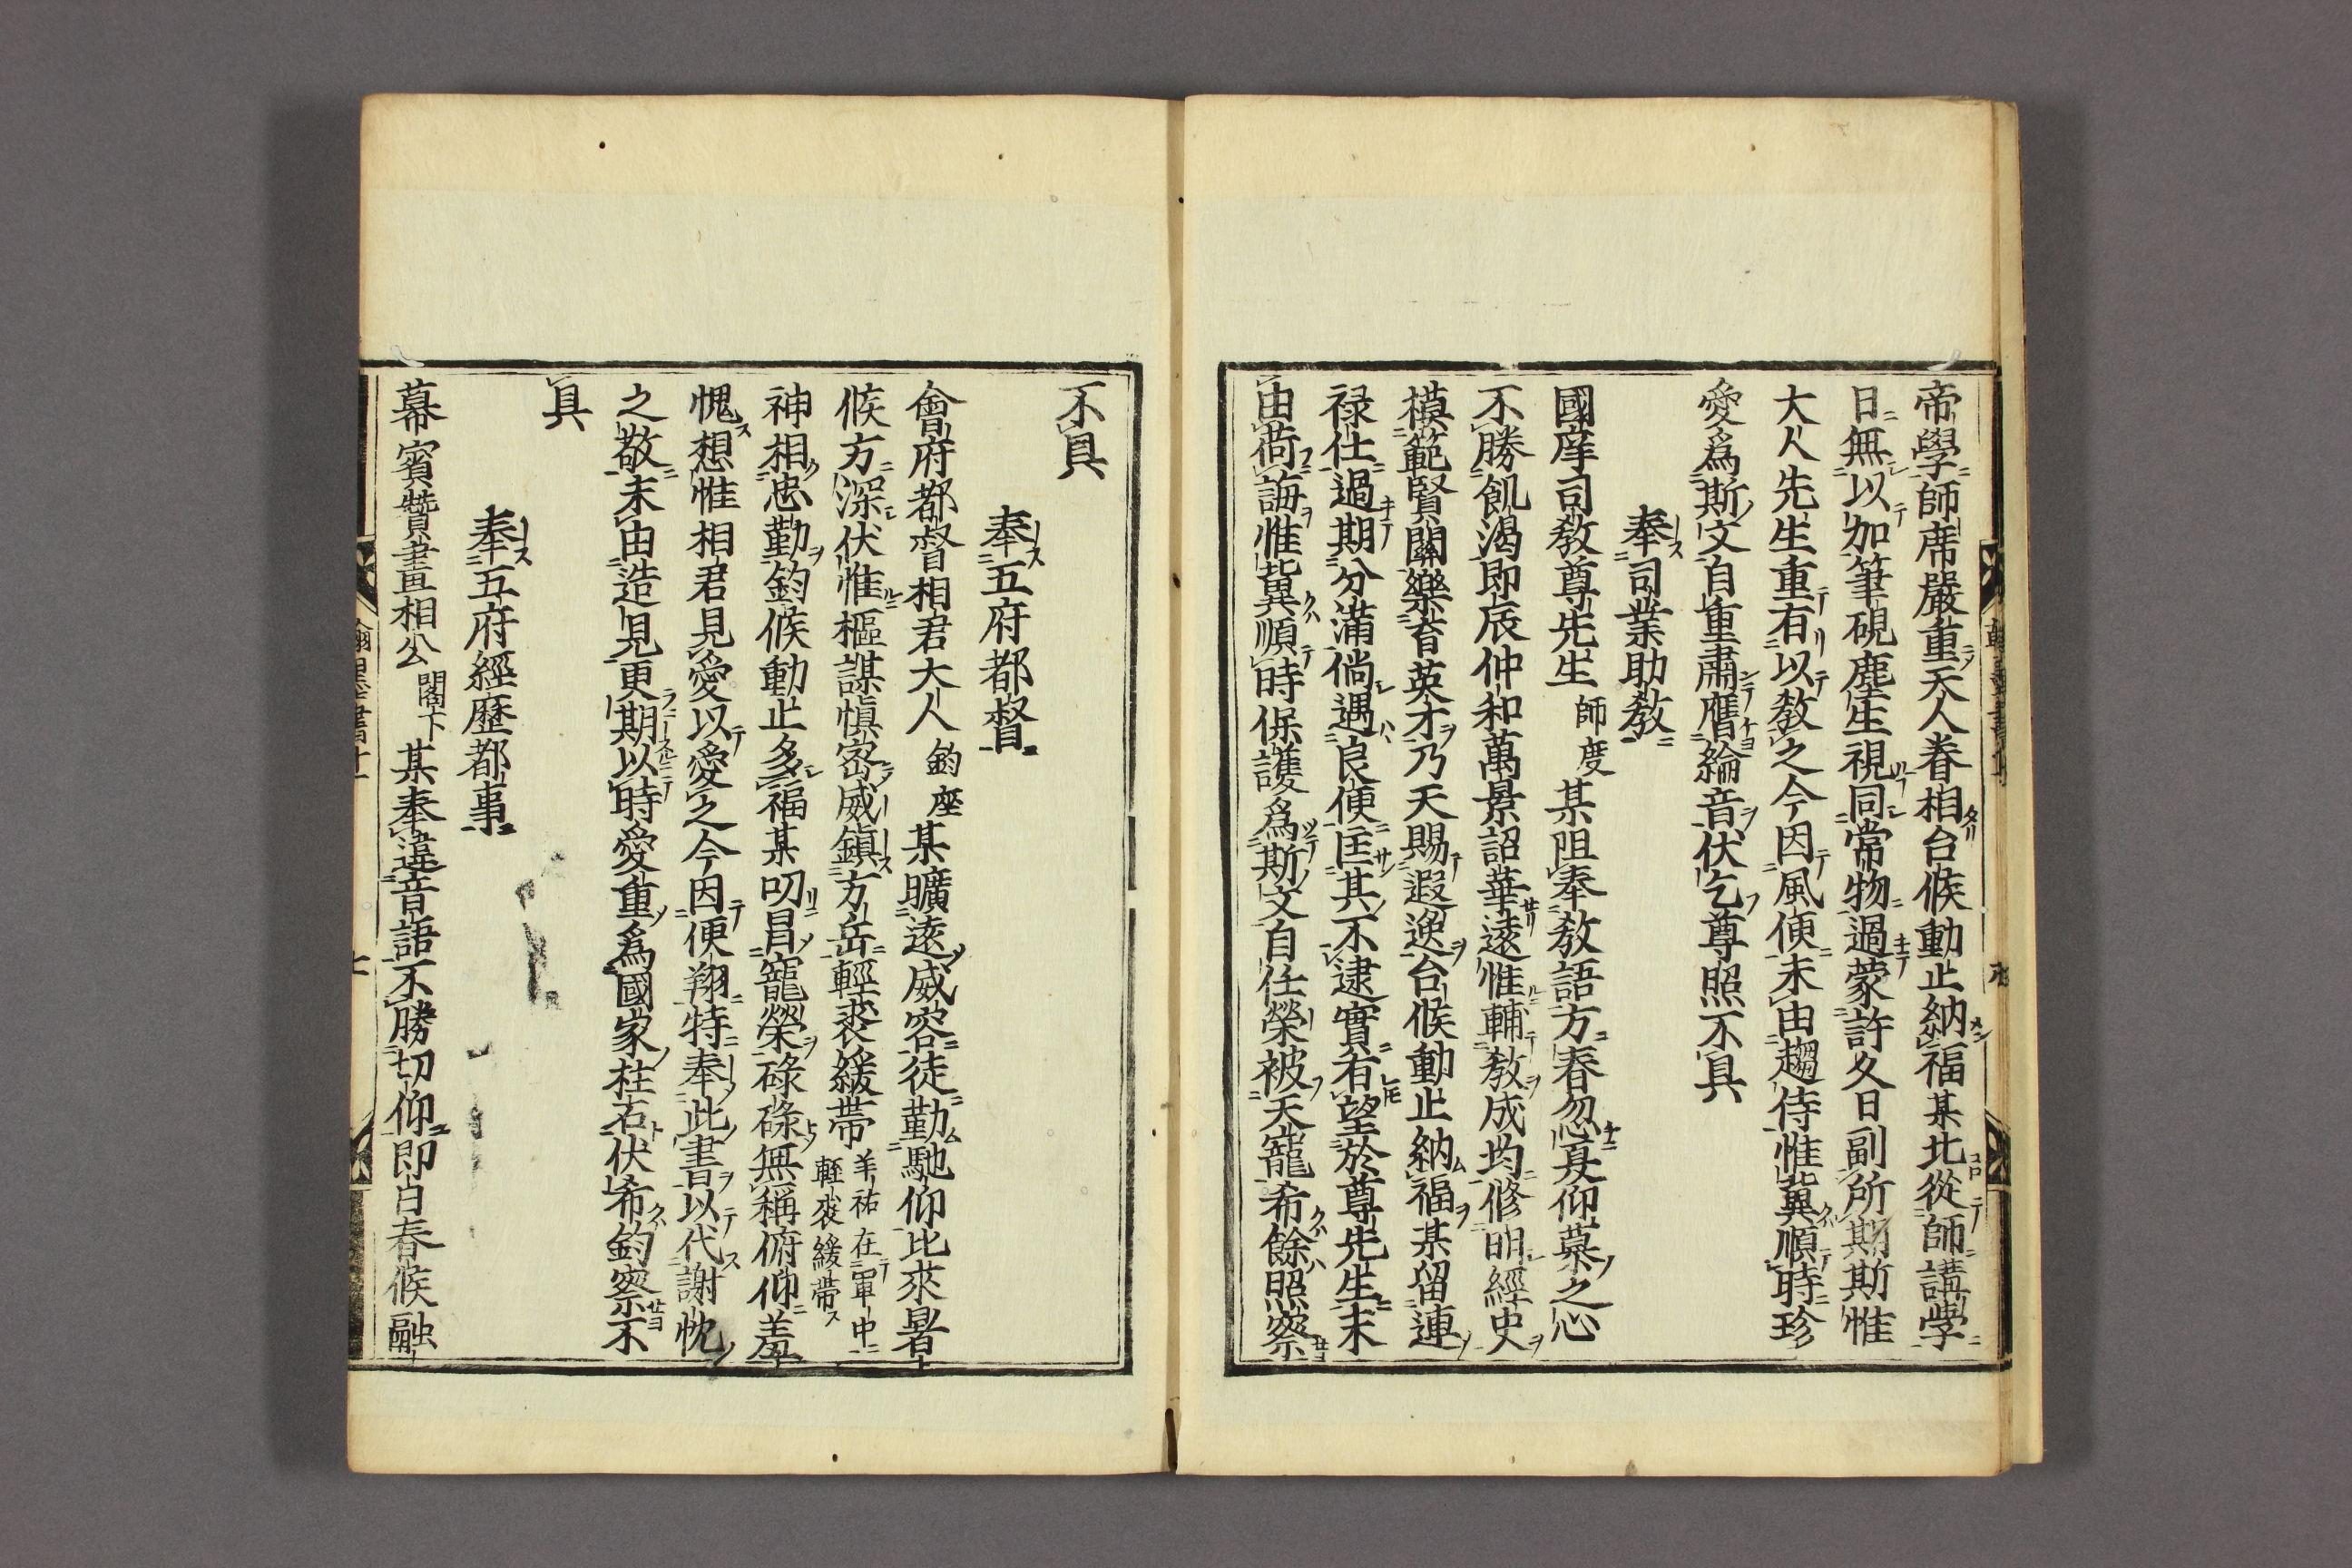 帝學師席嚴重天人眷相台候動止納福某比從師講學
日無以加筆硯塵生視同常物過蒙許久日副所期斯惟
大人先生重有以敎之今因風便未由趨侍惟冀順時珍
愛爲斯文自重肅膺綸音伏乞尊照不具
奉司業助敎
國庠司敎尊先生師度某阻奉敎語方春忽夏仰慕之心
不勝飢渴即辰仲和萬景詔華遠惟輔敎成均修明經史
模範賢關樂育英才乃天賜遐邇台候動止納福某留連
祿仕過期分滿倘遇良便匡其不逮實有望於尊先生末
由荷誨惟冀順時保護爲斯文自任榮被天寵希餘照察
不具
奉五府都督
會府都督相君大人鈞座某曠遠威容徒勤馳仰比來暑
候方深伏惟樞謀愼密威鎭方岳輕裘緩帶羊祜在軍中輕裘緩帶
神相忠勤鈞候動止多福某叨冒寵榮碌碌無稱俯仰羞
愧想惟相君見愛以愛之今因便翔特奉此書以代謝忱
之敬未由造見更期以時愛重爲國家柱石伏希鈞察不
具
奉五府經歷都事
幕賓贊畫相公閣下某奉違音語不勝切仰即日春候融